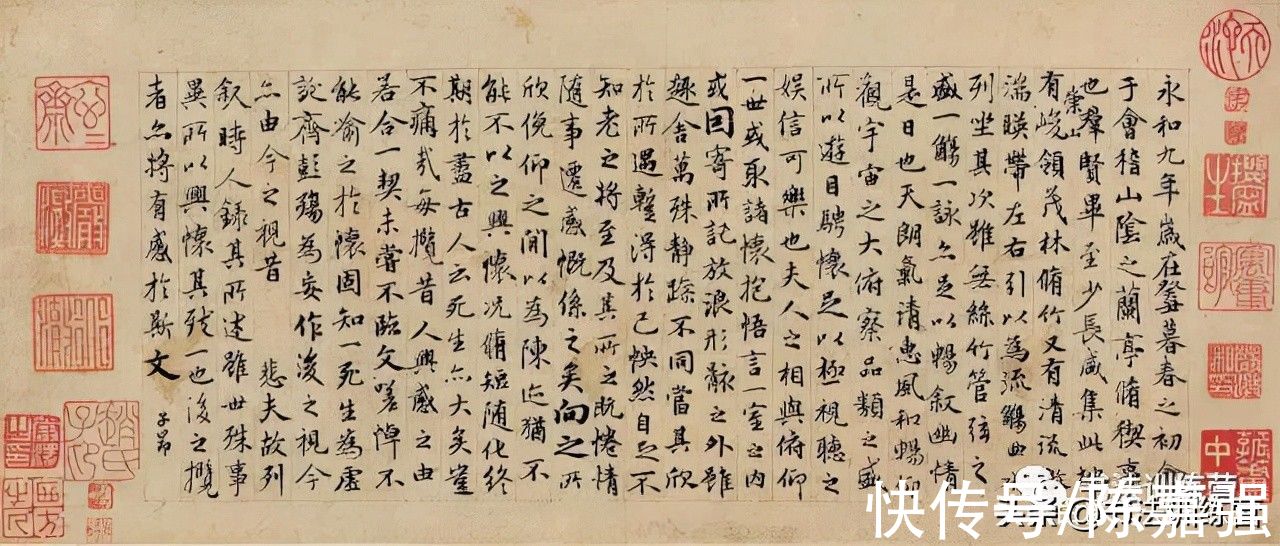 永和九年歲在癸丑暮春之初會
于會稽山陰之蘭亭脩稧事
也羣賢畢至少長咸集此地
有崇山峻領茂林脩竹又有清流激
湍暎帶左右引以為流觴曲水
列坐其次雖無絲竹管弦之
盛一觴一詠亦足以暢敘幽情
是日也天朗氣清惠風和暢仰
觀宇宙之大俯察品類之盛
所以遊目騁懷足以極視聽之
娛信可樂也夫人之相與俯仰
一世或取諸懷抱悟言一室之內
或因寄所託放浪形骸之外雖
趣舍萬殊靜躁不同當其欣
於所遇蹔得於己怏然自足不
知老之將至及其所之既惓情
隨事遷感慨係之矣向之所
欣俛仰之閒以為陳迹猶不
能不以之興懷況脩短隨化終
期於盡古人云死生亦大矣豈
不痛哉每攬昔人興感之由
若合一契未嘗不臨文嗟悼不
能喻之於懷固知一死生為虛
誕齊彭殤為妄作後之視今
亦由今之視昔 悲夫故列
敘時人錄其所述雖世殊事
異所以興懷其致一也後之攬
者亦將有感於斯文
子昂
趙氏子昂
快传号/陈嘉强